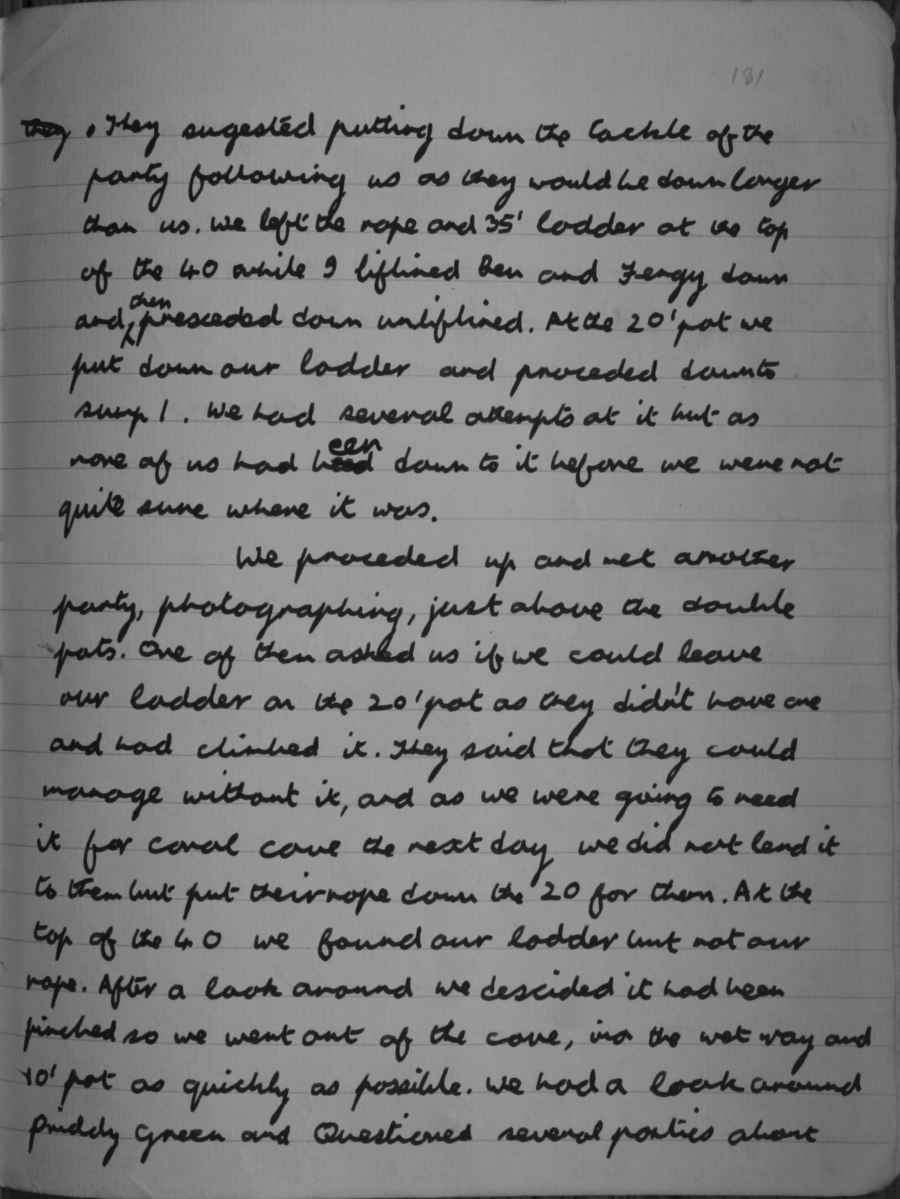 181
they . They sugested putting down the tackle of the
party following us as they would be down longer
than us. We left the rope and 35' ladder at the top
of the 40 while I liflined Ben and Fergy down
and then presceded down unliflined. At the 20' pot we
put down our ladder and proceded down to
sump 1. We had several attempts at it but as
none of us had been down to it before we were not
quite sure where it was.
We proceded up and met another
party, photographing, just above the double
pots. One of them asked us if we could leave
our ladder on the 20' pot as they didn't have one
and had climbed it. They said that they could
manage without it, and as we were going to need
it for coral cave the next day we did not lend it
to them but put their rope down the 20 for them. At the
top of the 40 we found our ladder but not our
rope. After a look around we descided it had been
pinched so we went out of the cave, via the wet way and
10' pot as quickly as possible. We had a look around
Priddy Green and Questioned several parties about